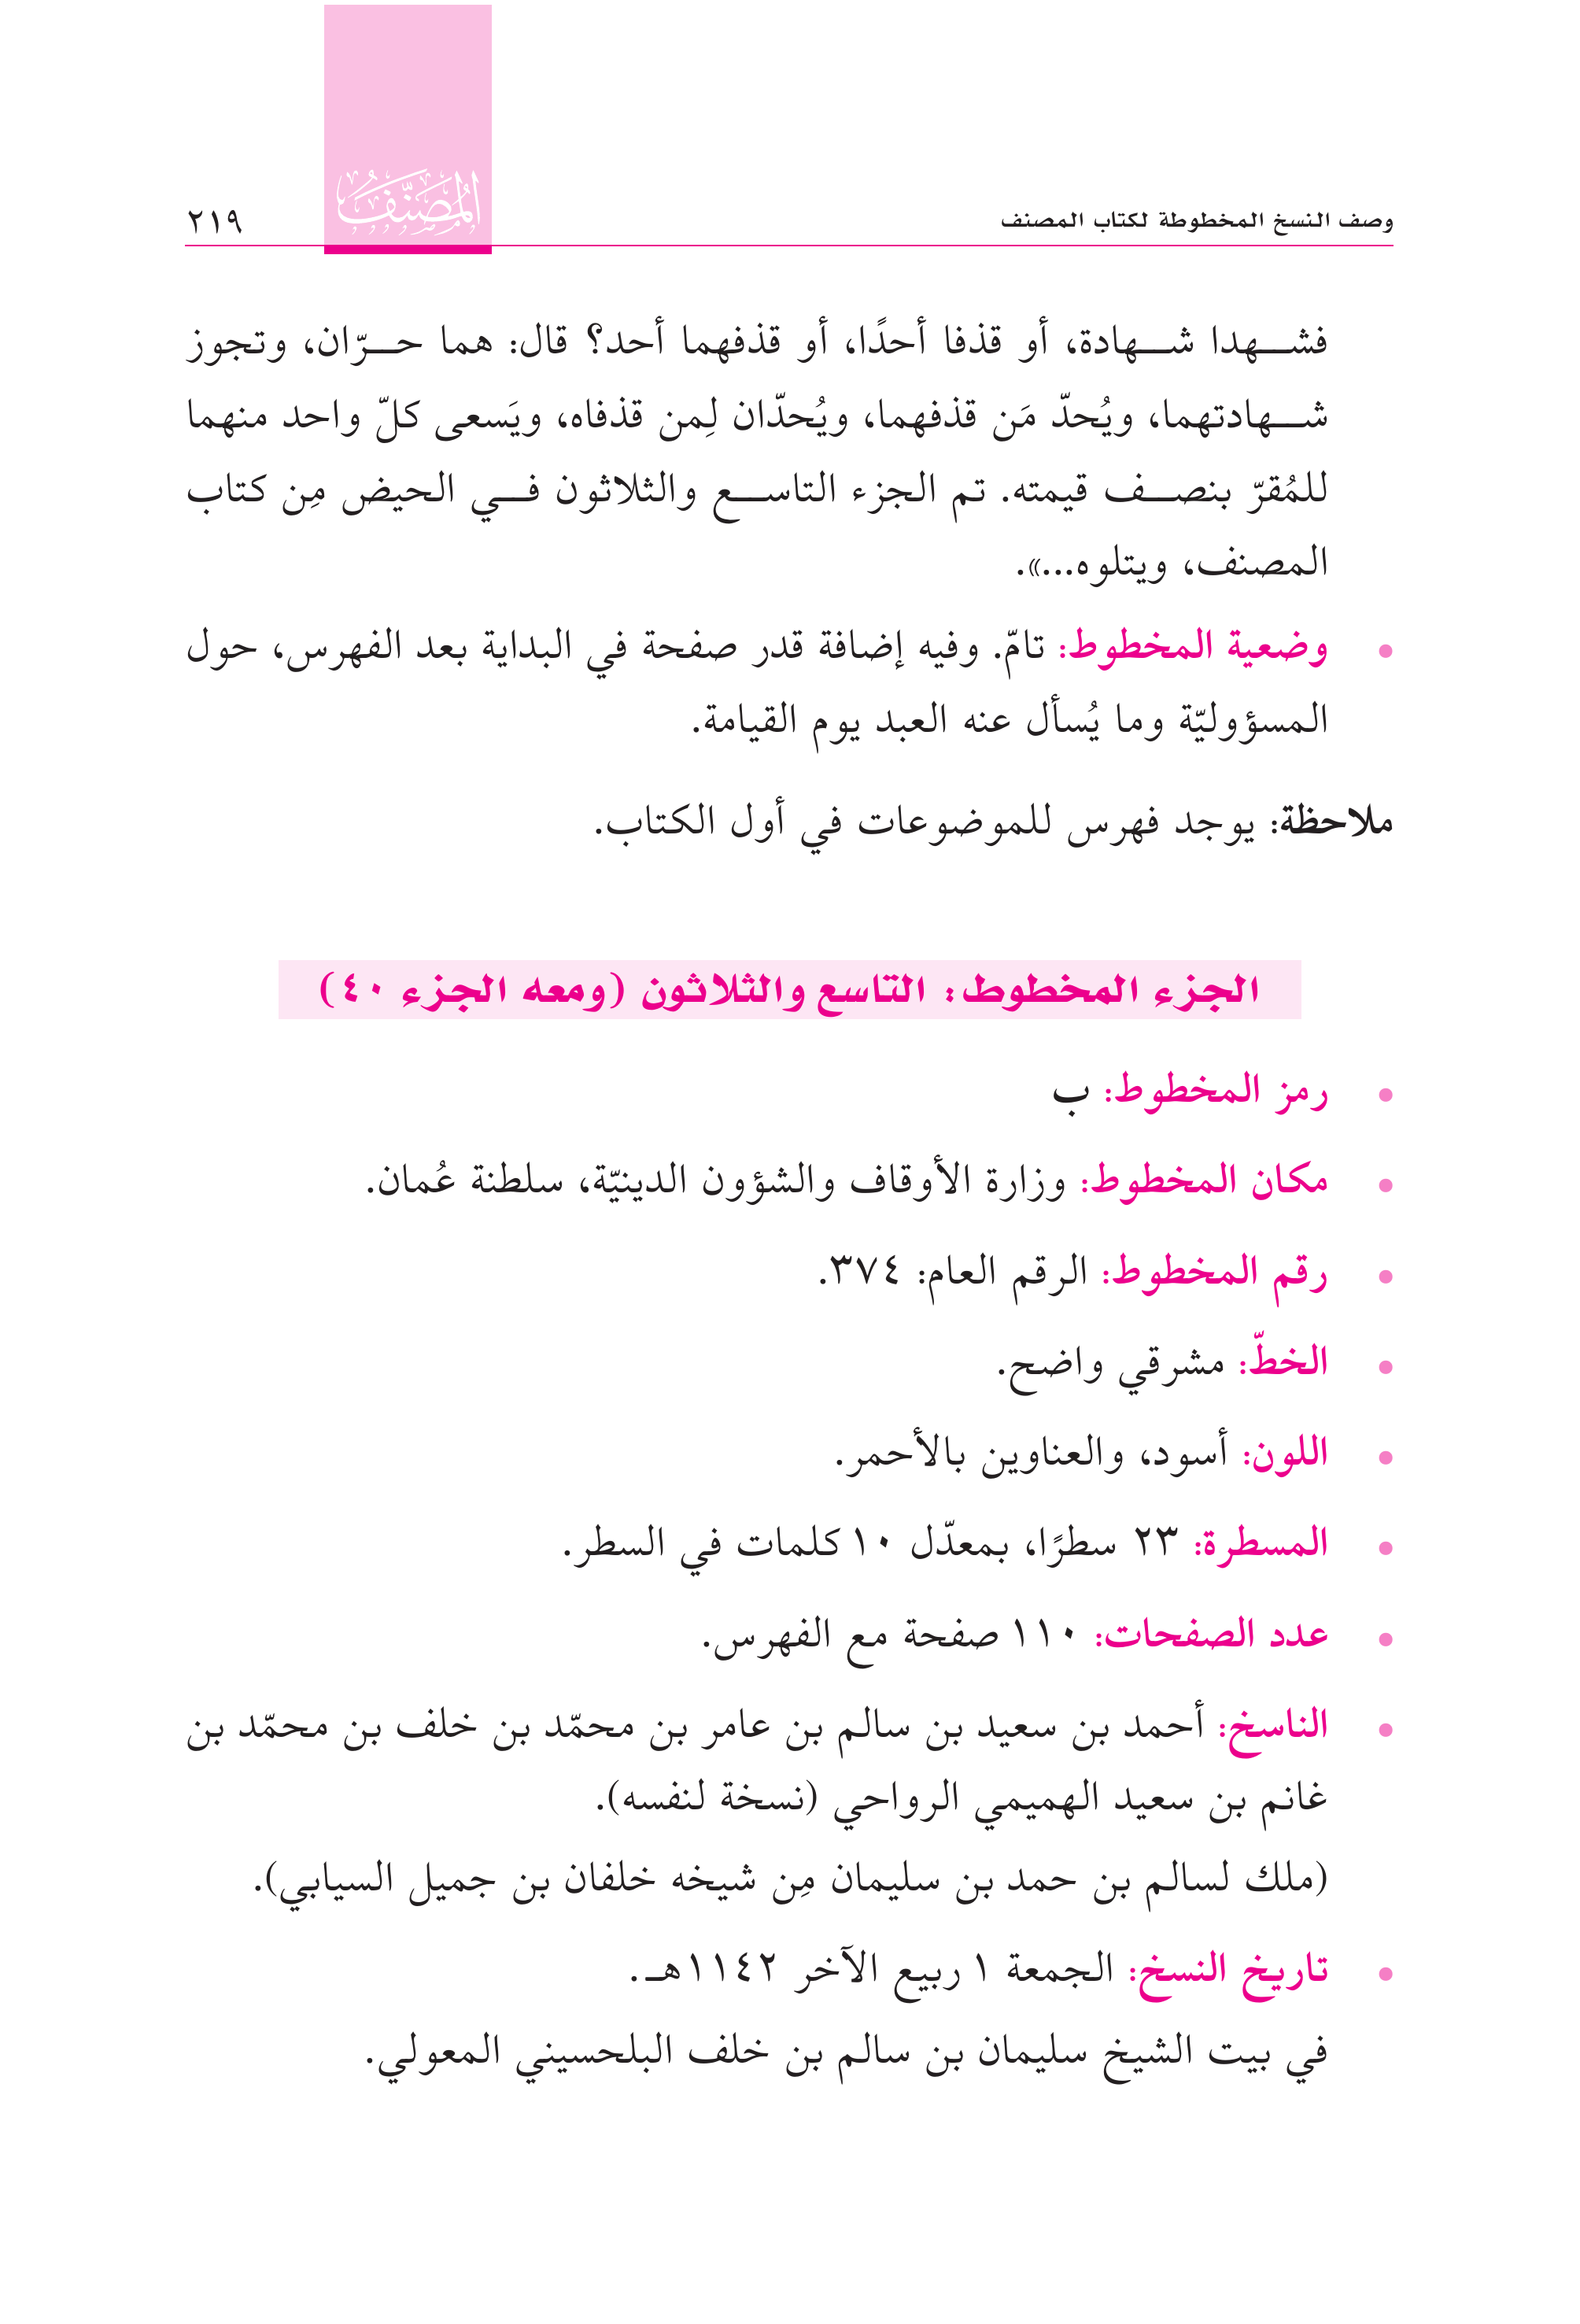 وصف النسخ المخطوطة لكتاب المصنف
المُصَنَّف
٢١٩
فشهدا شهادة، أو قذفا أحدًا، أو قذفهما أحد؟ قال: هما حرّان، وتجوز
شهادتهما، ويُحدّ مَن قذفهما، ويُحدّان لِمن قذفاه، ويَسعى كلّ واحد منهما
للمُقرّ بنصف قيمته. تم الجزء التاسع والثلاثون في الحيض مِن كتاب
المصنف، ويتلوه...».
• وضعية المخطوط: تامّ. وفيه إضافة قدر صفحة في البداية بعد الفهرس، حول
المسؤوليّة وما يُسأل عنه العبد يوم القيامة.
ملاحظة: يوجد فهرس للموضوعات في أول الكتاب.
الجزء المخطوط: التاسع والثلاثون (ومعه الجزء ٤٠)
• رمز المخطوط: ب
• مكان المخطوط: وزارة الأوقاف والشؤون الدينيّة، سلطنة عُمان.
• رقم المخطوط: الرقم العام: ٣٧٤.
• الخطّ: مشرقي واضح.
• اللون: أسود، والعناوين بالأحمر.
• المسطرة: ٢٣ سطرًا، بمعدّل ١٠ كلمات في السطر.
• عدد الصفحات: ١١٠ صفحة مع الفهرس.
• الناسخ: أحمد بن سعيد بن سالم بن عامر بن محمّد بن خلف بن محمّد بن
غانم بن سعيد الهميمي الرواحي (نسخة لنفسه).
(ملك لسالم بن حمد بن سليمان مِن شيخه خلفان بن جميل السيابي).
• تاريخ النسخ: الجمعة ١ ربيع الآخر ١١٤٢هـ.
في بيت الشيخ سليمان بن سالم بن خلف البلحسيني المعولي.